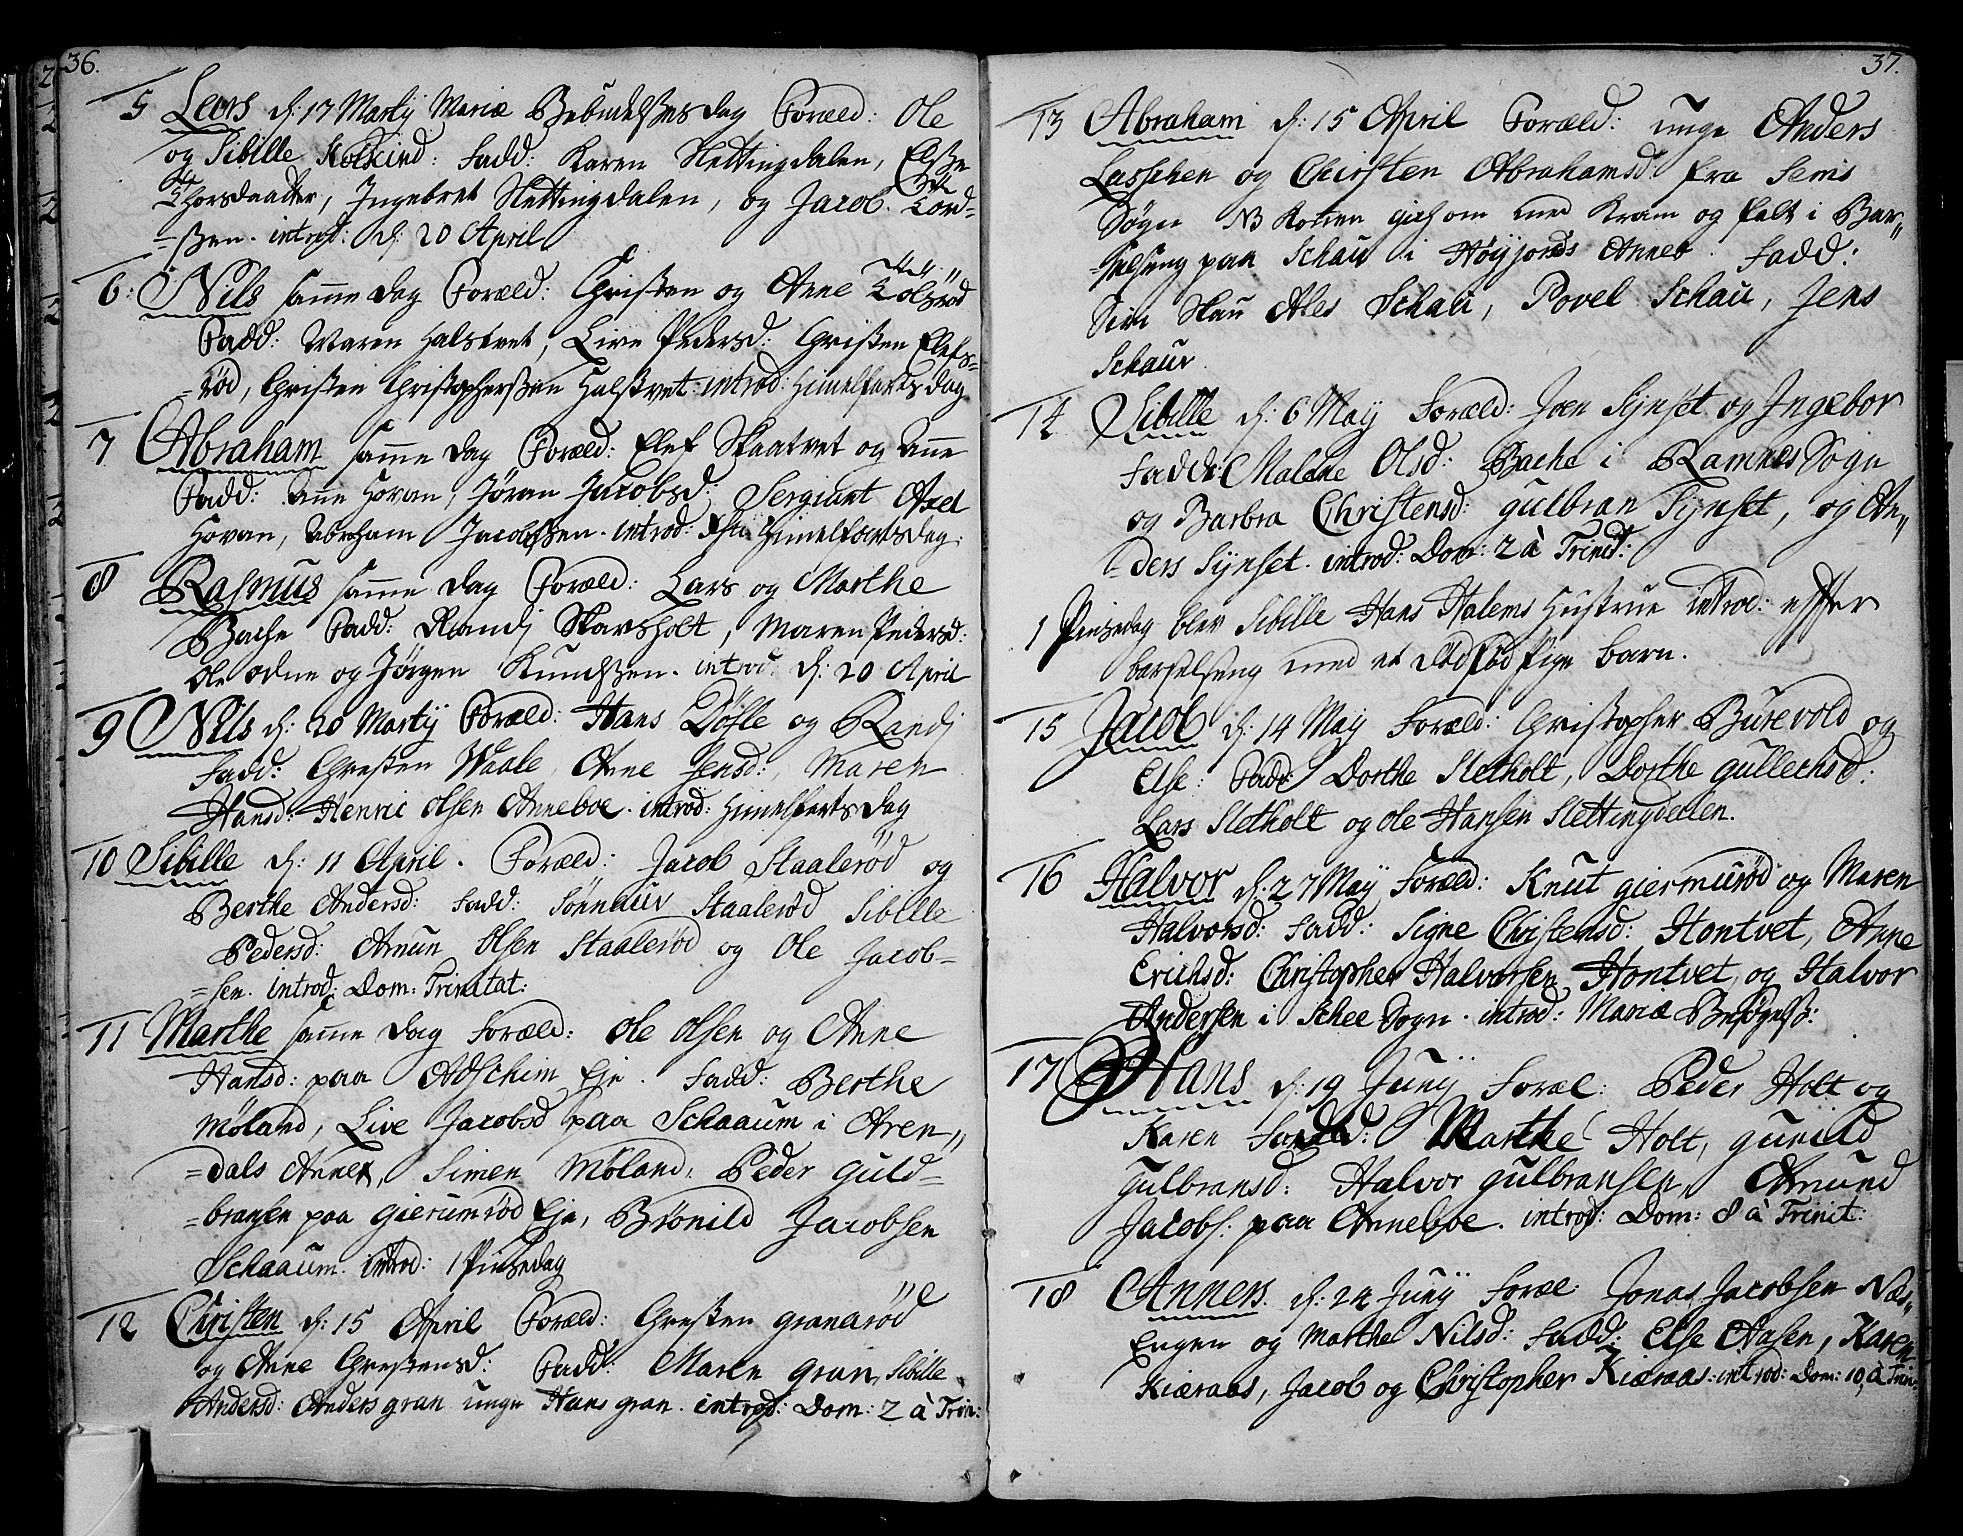 36.
5 Lars d: 17 Martij Mariæ Bebudelses dag Foræld: Ole
og Sibille Kolkind: Fadd: Karen Slettingdalen,
Thorsdaatter, Ingebret Slettingdalen, og Jacob Tord-
=sen. introd: d: 20 April
6: Nils samme dag Foræld: Christen og Anne Tolsrød
Fadd: Maren Halstvet, Live Pedersd: Christen Elefs-
=rød, Christen Christophersen Halstvet: introd: Himelfarts dag
7 Abraham samme dag Foræld: Elef Skaatvet og Anne
Fadd: Anne Hovan, Jøran Jacobsd: Sergiant Axel
Hovan, Abraham Jacobsen. introd: Himelfartsdag.
8 Rasmus samme dag Foræld: Lars og Marthe
Bache Fadd: Randj Skarsholt, Maren Pedersd:
Ole odne og Jørgen Knudsen. introd. d: 20 April
9 Nils d: 20 Martij Foræld: Hans Døfle og Randj
Fadd: Christen Waale, Anne Jensd:, Maren
Hansd: Henric Olsen Anneboe. introd: Himelfarts dag
10 Sibille d: 11 April. Foræld: Jacob Staalerød og
Berthe Andersd: Fadd: Sønnauv Staalerød Sibille
Pedersd: Amun Olsen Staalerød og Ole Jacob-
=sen. introd: Dom: Trinitat:
11 Marthe samme dag Foræld: Ole Olsen og Anne
Hansd: paa Adschim Eje. Fadd: Berthe
Møland, Live Jacobsd paa Schaaum i Aren,,
=dals Annex, Simen Møland, Peder Guld-
=bransen paa Gierumrød Eje, Brønild Jacobsen
Schaaum. introd: 1 Pinsedag
12 Christen d: 15 April Foræld: Christen Granerød
og Anne Christensd: Fadd: Maren Gran, Sibille
Andersd: Anders gran unge Hans gran. introd: Dom: 2 à Trin:
37.
13 Abraham d: 15 April Foræld: unge Anders
Lasschen og Chirsten Abrahamsd: fra Sems
Sogn NB Konen gich om med Kram og falt i Bar,,
=selseng paa Schau i Høyjords Annex. Fadd:
Siri Skau Ales Schau, Povel Schau, Jens
Schauv
14 Sibille d: 6 Maij Foræld: Joen Synset og Ingebor
Fadd: Malene Olsd: Bache i Ramnes Sogn
og Barbra Christensd: gulbran Synset, og An,,
=ders Synset. introd: Dom: 2 à Trinit:
1 Pinsedag blev Sibille Hans Halems Hustrue introd: efter
barselseng med et dødfød Pige barn.
15 Jacob d: 14 Maij Foræld: Christopher Burevold og
Else: Fadd: Dorthe Sletholt, Dorthe gullechsd:
Lars Sletholt og Ole Hansen Slettingdalen.
16 Halvor d: 27 Maij Foræld: Knut giermurød og Maren
Halvorsd: Fadd: Signe Christensd: Hontvet, Anne
Erichsd: Christopher Halvorsen Hontvet, og Halvor
Andersen i Schee Sogn. introd: Mariæ Besøgels:
17 Hans d: 19 Junij Foræl: Peder Holt og
Karen Fadd: Marthe Holt, gunild
Gulbransd: Halvor gulbransen, Amund
Jacobs: paa Anneboe. introd: Dom: 8 à Trinit:
18 Anners. d: 24 Junij Foræl: Jonas Jacobsen Næs,,
Engen og Marthe Nilsd: Fadd: Else Aasen, Karen
Kiæraas, Jacob og Christopher Kiæraas: introd: Dom: 10 à Trin: